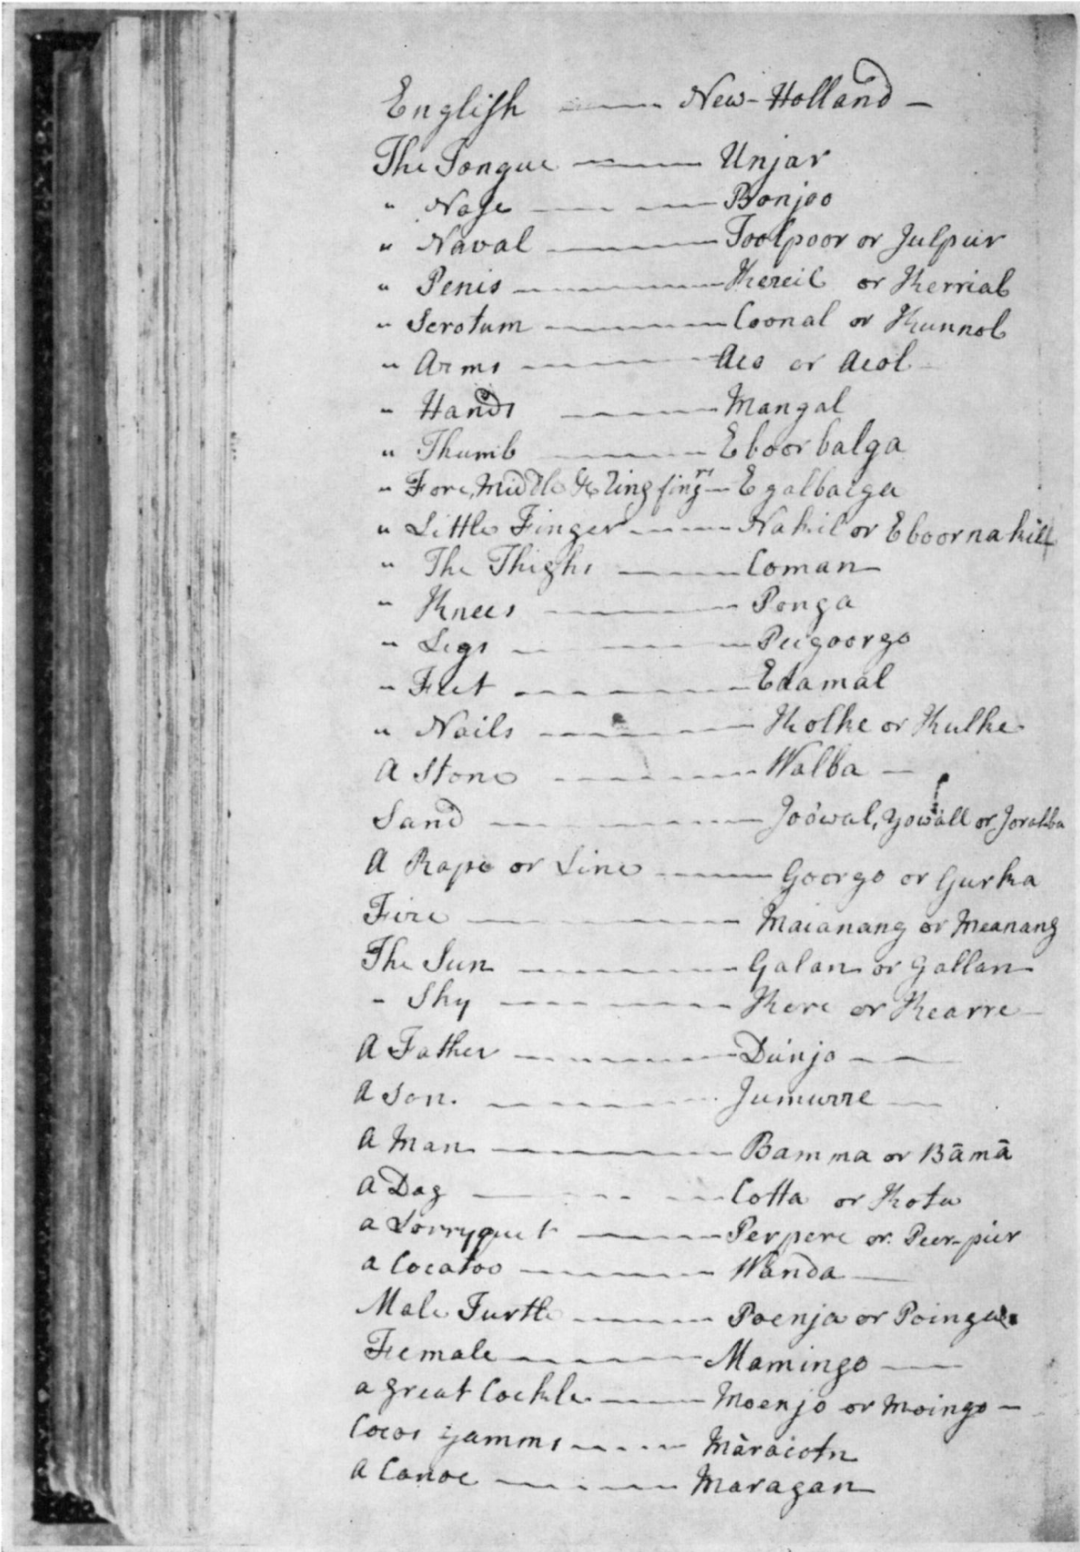 English — New-Holland —
The Tongue — Unjar
" Nose — Bonjoo
" Naval — Toolpoor or Julpur
" Penis — Kereil or Kerrial
" Scrotum — Coonal or Kunnol
" Arms — Aco or Acol
" Hands — Mangal
" Thumb — Eboorbalga
" Fore, Middle & Ring fingrs — Egalbaiga
" Little Finger — Nakil or Eboornakill
" The Thighs — Coman
" Knees — Ponga
" Legs — Peegoorgo
" Feet — Edamal
" Nails — Kolke or Kulke
A Stone — Walba —
Sand — Joo'wal, Yowall or Joralba
A Rope or Line — Goorgo or Gurka
Fire — Maianang or Meanang
The Sun — Galan or Gallan
" Sky — Kere or Kearre
A Father — Dunjo —
A Son. — Jumurre —
A Man — Bamma or Bāmā
A Dog — Cotta or Kota
a Lorryquet — Perpere or Peer-pier
a Cocatoo — Wanda —
Male Turtle — Poenja or Poinga
Female — Mamingo —
a great Cockle — Moenjo or Moingo —
Cocos Yamms — Maracotn
A Canoe — Maragan